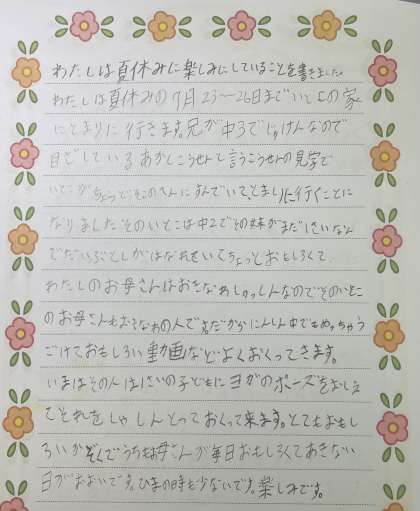 わたしは夏休みに楽しみにしていることを書きました。
わたしは夏休みの7月23〜26日までいとこの家
にとまりに行きます。兄が中3でじゅけんなので
目ざしているあかしこうせんと言うこうせんの見学で
いとこがちょうどそこのへんにすんでいて、とまりに行くことに
なりました。そのいとこは中2でその妹がまだ2さいなん
でだいぶとしがはなれていてちょっとおもしろくて、
わたしのお母さんはおきなわしゅっしんなのでそのいとこ
のお母さんもおきなわの人でだからにんしん中でもめっちゃう
ごけておもしろい動画などよくおくってきます。
いまはその人は2さいの子どもにヨガのポーズをおしえ
てそれをしゃしんとっておくって来ます。とてもおもし
ろいかぞくでうちもお母さんが毎日おもしろくてあきない
日がおおいです。ひまの時も少ないです。楽しみです。